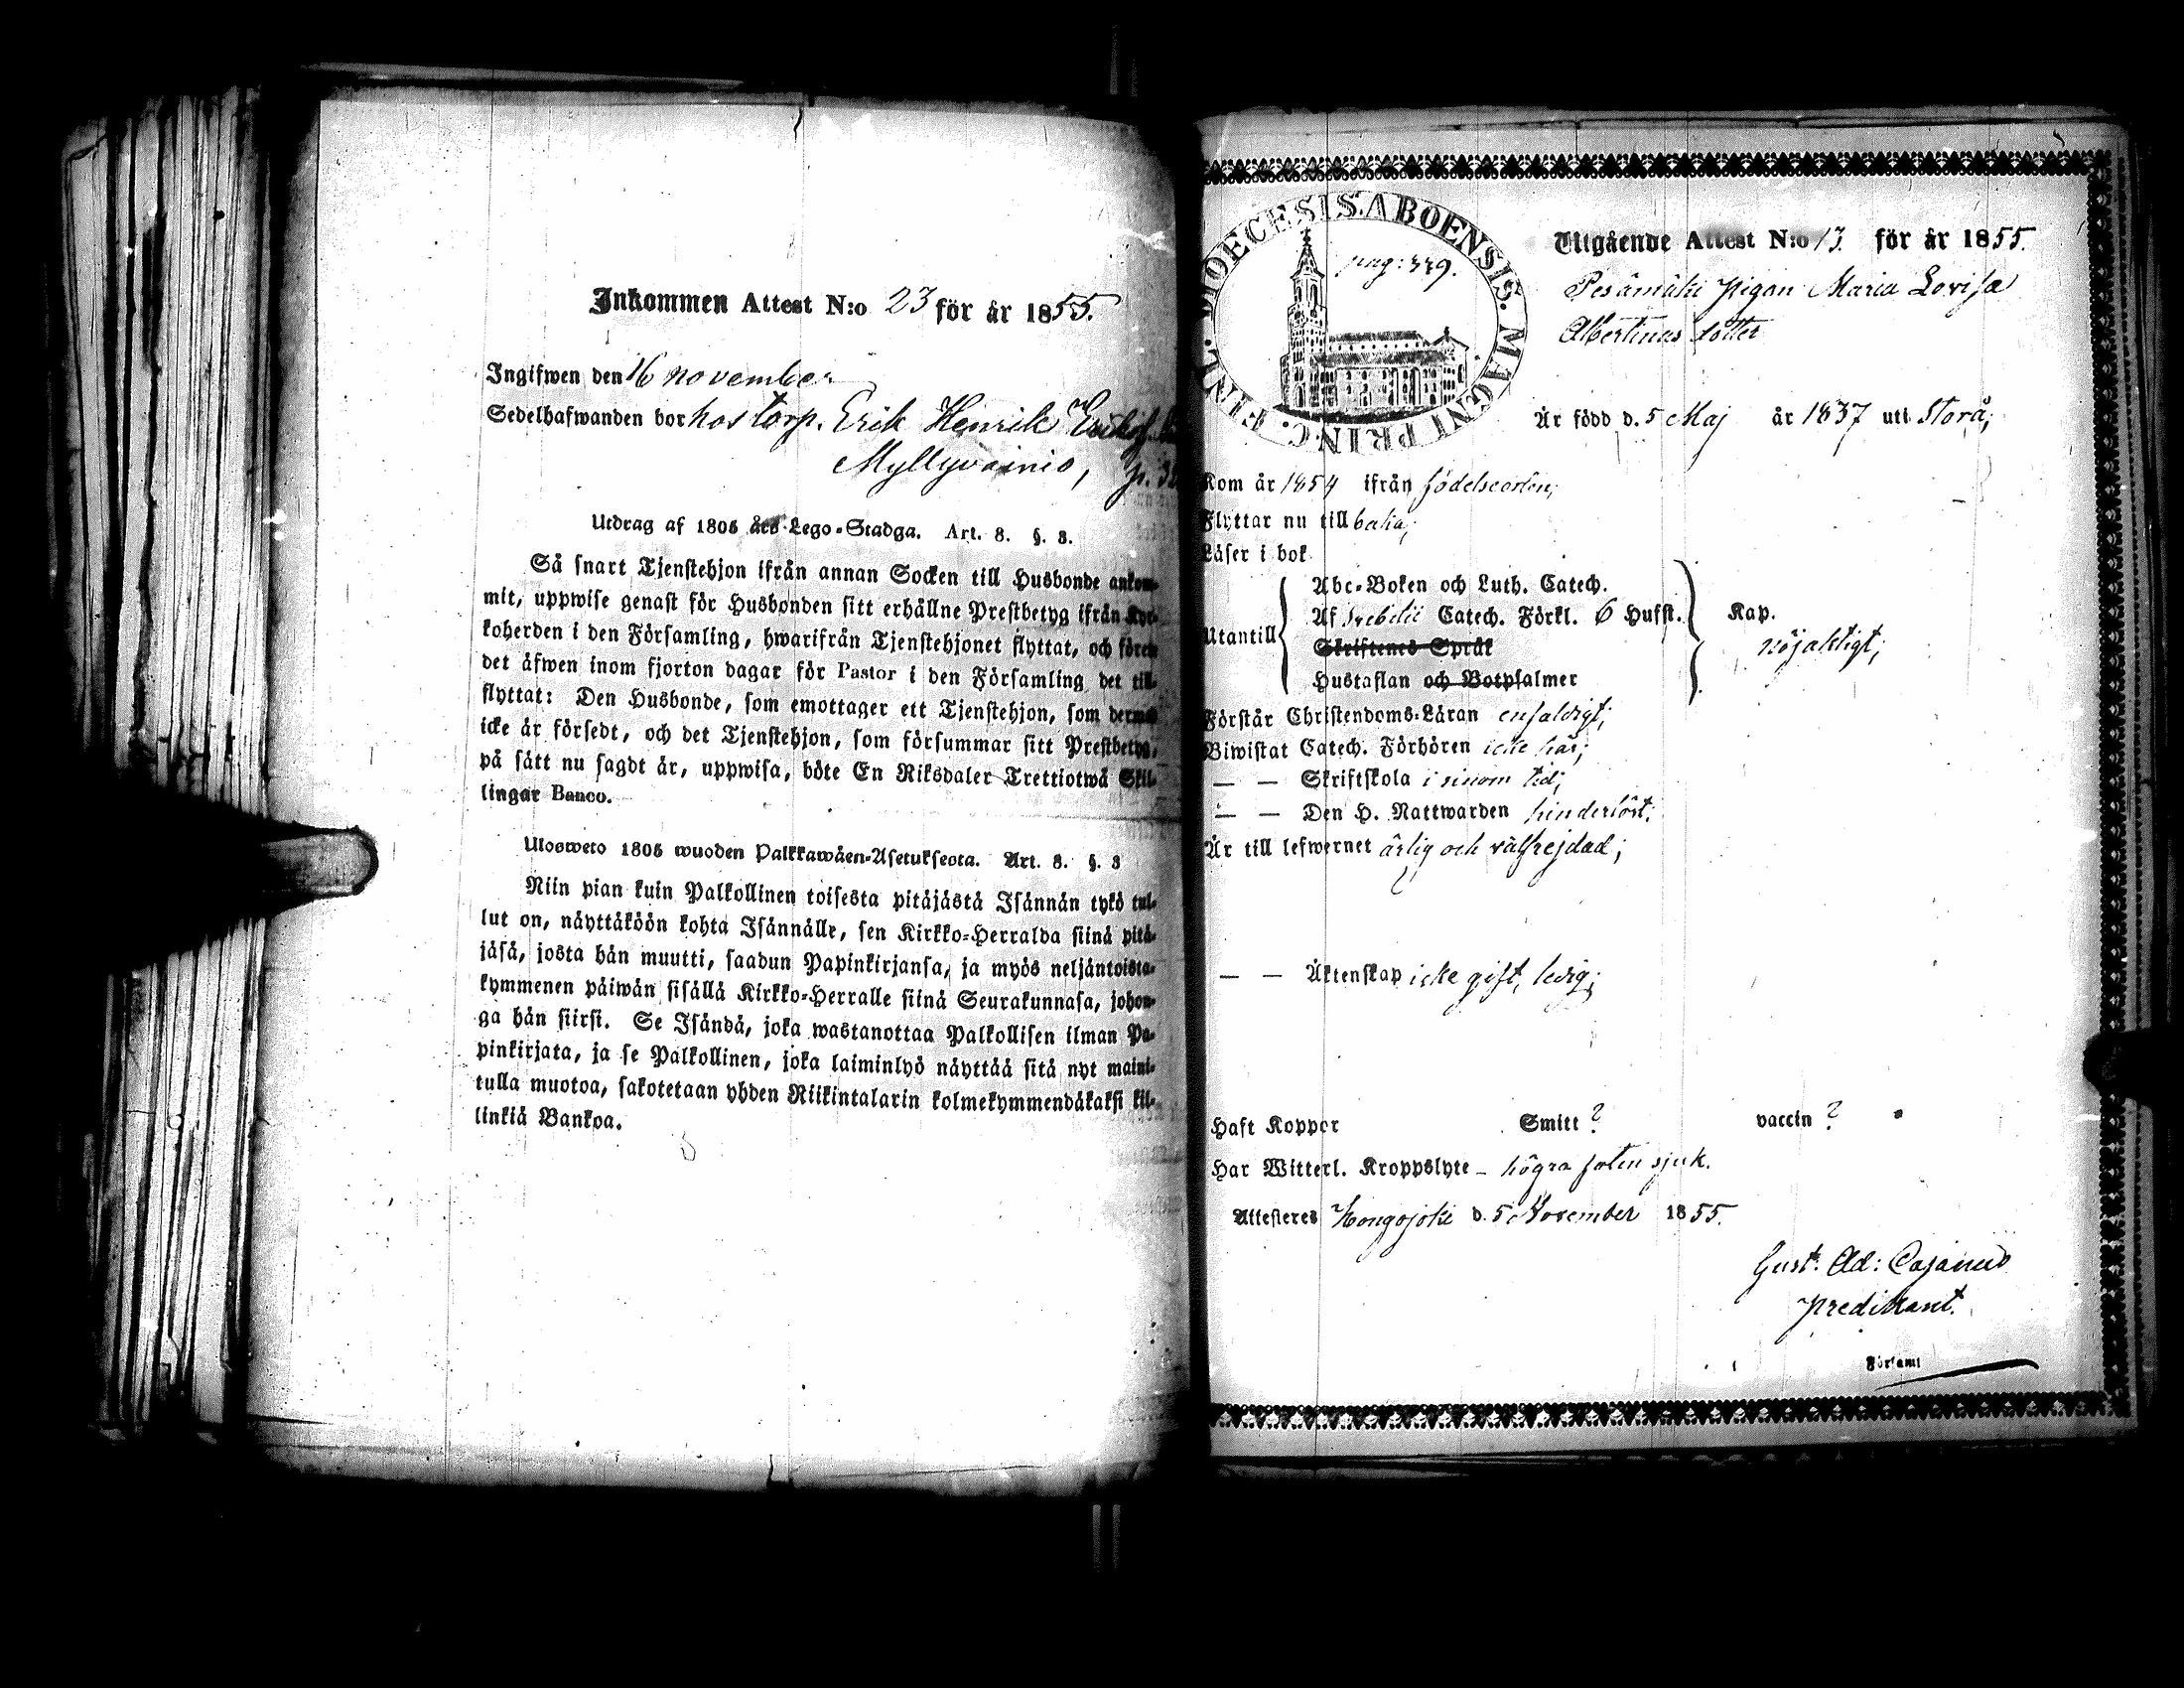 Inkommen Attest N:o 23 för år 1855.
Ingifwen den 16 november
Sedelhafwanden bor hos torp. Erik Henrik
Myllyvainio,
Utdrag af 1805 års Lego-Stadga. Art. 8. §. 3.
Så snart Tjenstehjon ifrån annan Socken till Husbonde ankom-
mit, uppwise genast för Husbonden sitt erhållne Prestbetyg ifrån Kyr-
koherden i den Församling, hwarifrån Tjenstehjonet flyttat, och förete
det äfwen inom fjorton dagar för Pastor i den Församling det till-
flyttat: Den Husbonde, som emottager ett Tjenstehjon, som dermed
icke är försedt, och det Tjenstehjon, som försummar sitt Prestbetyg,
på sätt nu sagdt är, uppwisa, böte En Riksdaler Trettiotwå Skil-
lingar Banco.
Ulosweto 1805 wuoden Palkkawäen-Asetuksesta. Art. 8. §. 3
Niin pian kuin Palkollinen toisesta pitäjästä Isännän tykö tul-
lut on, näyttäköön kohta Isännälle, sen Kirkko-Herralda siinä pitä-
jäsä, josta hän muutti, saadun Papinkirjansa, ja myös neljäntoista-
kymmenen päiwän sisällä Kirkko-Herralle siinä Seurakunnasa, johon-
ga hän siirsi. Se Isändä, joka wastanottaa Palkollisen ilman Pa-
pinkirjata, ja se Palkollinen, joka laiminlyö näyttää sitä nyt maini-
tulla muotoa, sakotetaan yhden Riikintalarin kolmekymmendäkaksi kil-
linkiä Bankoa.
DIOECESIS. ABOENSIS. MAGNI PRINC. FINL.
pag: 339.
Utgående Attest N:o 13. för år 1855.
Pesämäki pigan Maria Lovisa
Albertinus dotter
Är född d. 5 Maj år 1837 uti Storå;
Kom år 1854 ifrån födelseorten;
Flyttar nu tillbaka;
Läser i bok
Utantill
Abc-Boken och Luth. Catech.
Af Svebilii Catech. Förkl. 6 Hufst. Kap.
Skriftenes Språk
nöjaktigt;
Hustaflan och Botpsalmer
Förstår Christendoms-Läran enfaldigt;
Biwistat Catech. Förhören icke här;
— — Skriftskola i sinom tid;
— — Den H. Nattwarden hinderlöst;
Är till lefwernet ärlig och välfrejdad;
— — Äktenskap icke gift, ledig;
Haft Koppor Smitt? vaccin?
Har Witterl. Kroppslyte – högra foten sjuk.
Attesteres Kongojoki d. 5 November 1855.
Gust: Ad: Cajanus
predikant.
Församl